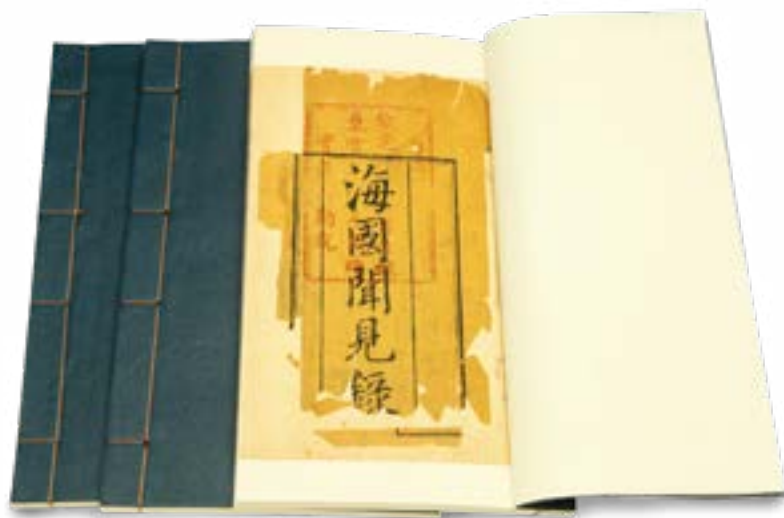 海國聞見錄